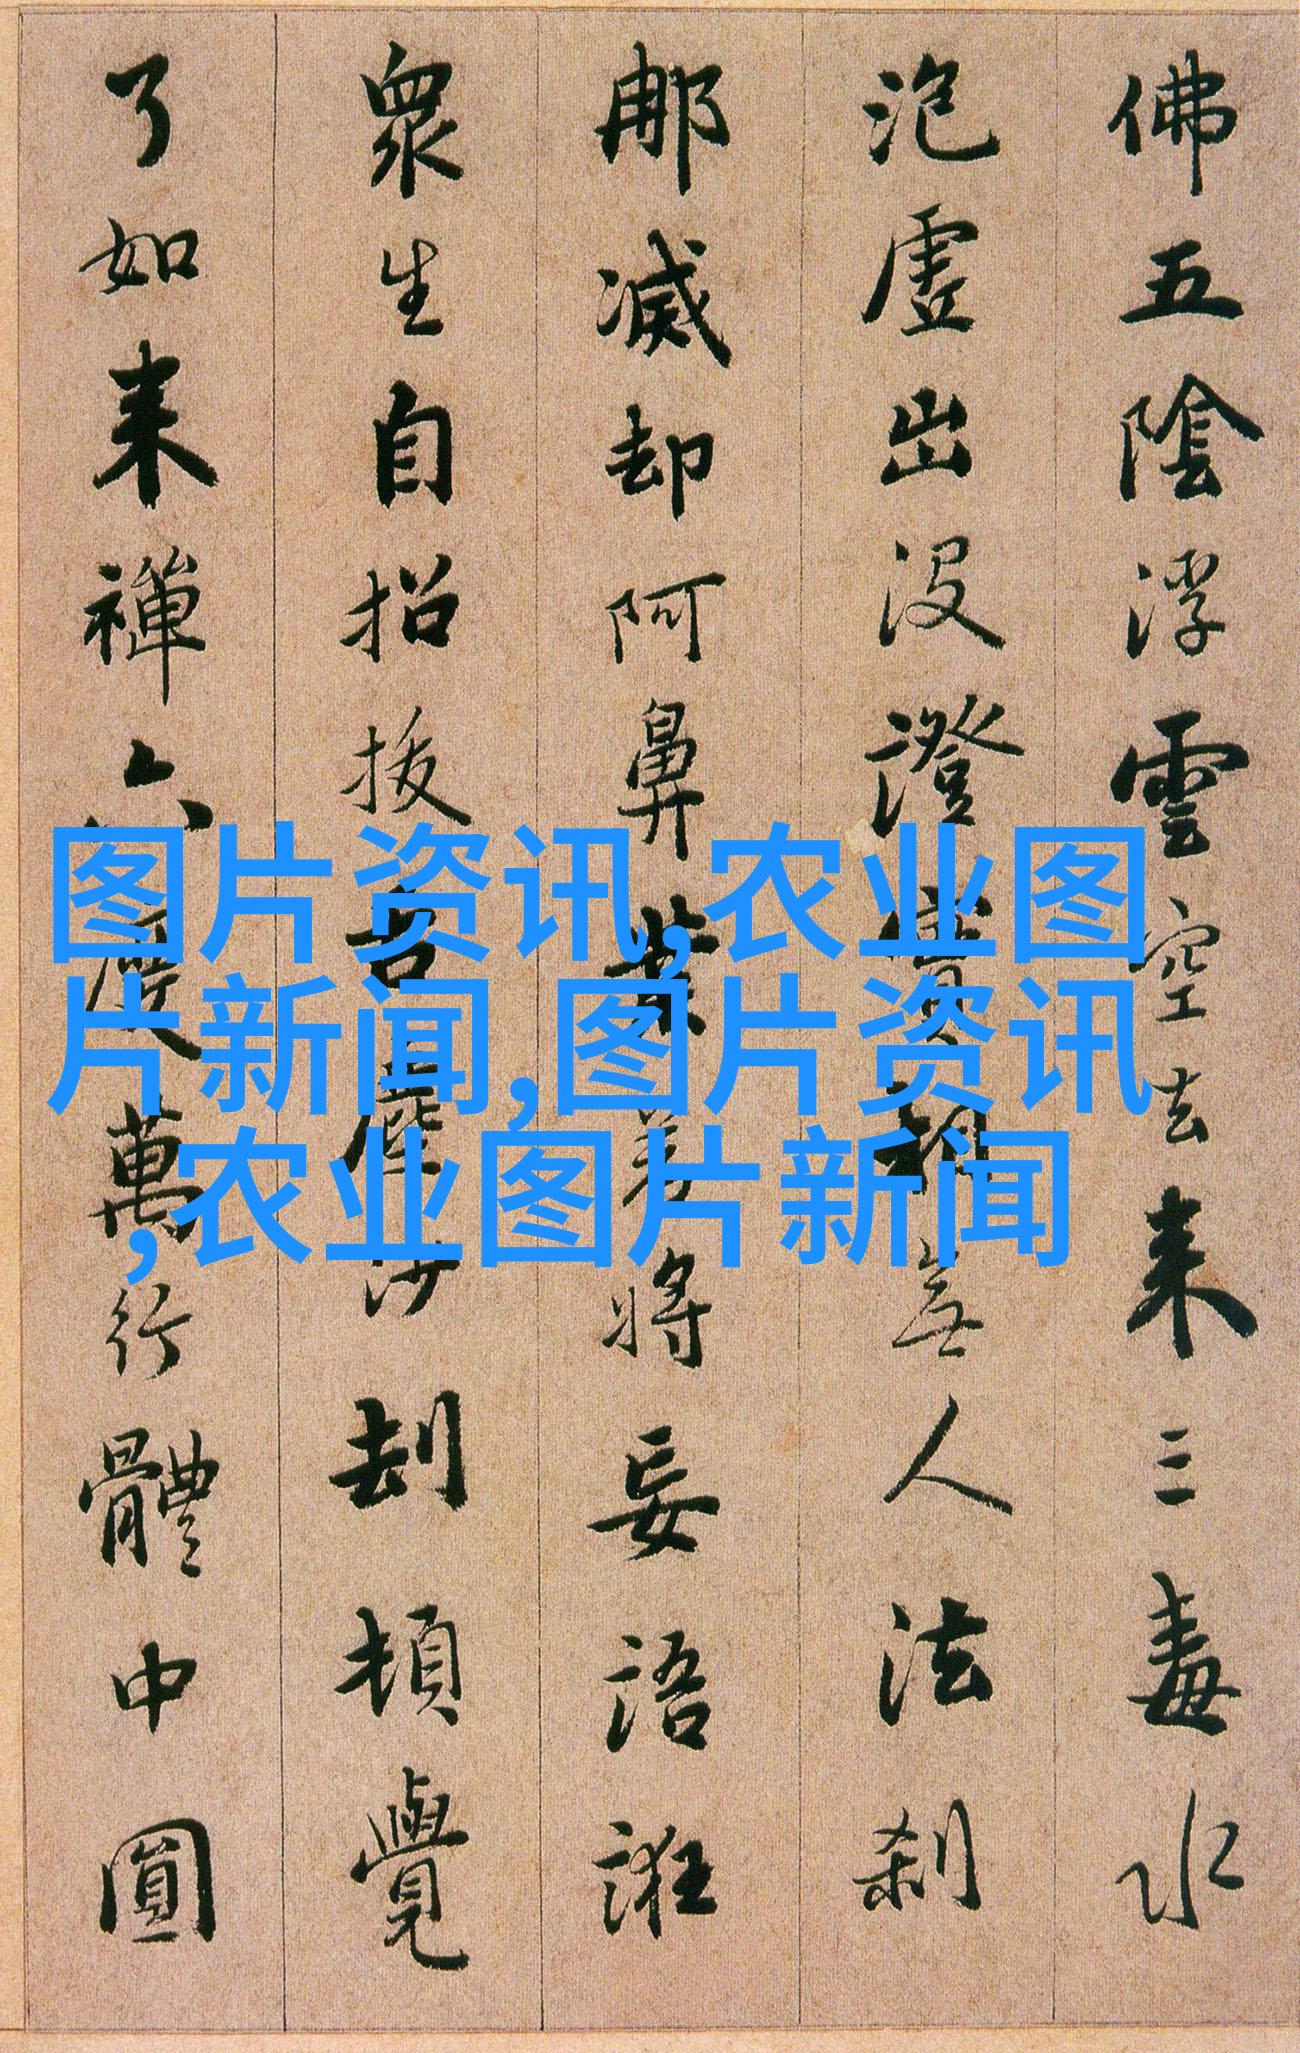 佛五陰浮雲空去来三毒水
泡虚出没澄實相無人法刹
那滅却阿鼻業若將妄語誑
眾生自招拔舌塵沙劫頓覺
了如来禪六度萬行體中圓
图片资讯,农业图
片新闻,图片资讯
,农业图片新闻